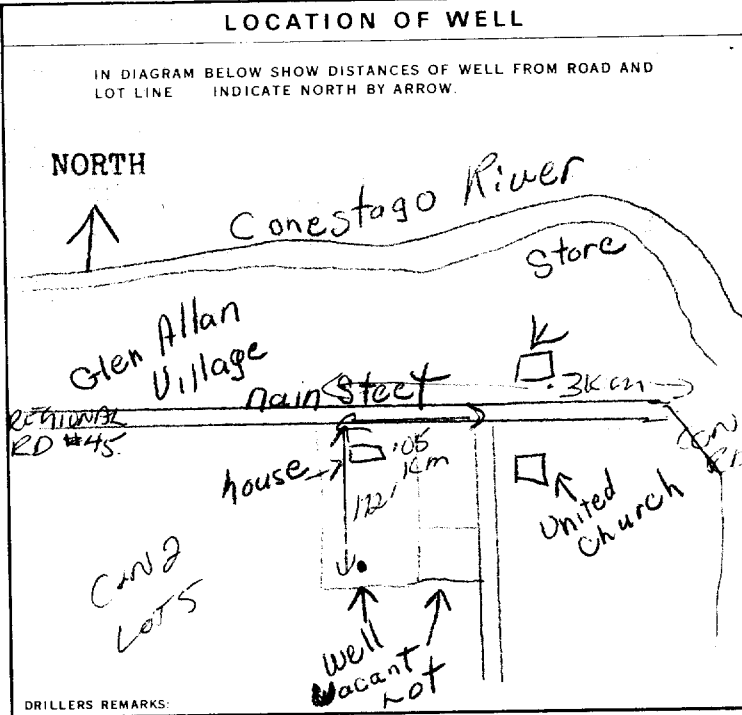 LOCATION OF WELL
IN DIAGRAM BELOW SHOW DISTANCES OF WELL FROM ROAD AND
LOT LINE INDICATE NORTH BY ARROW.
NORTH
Conestago River
Store
Glen Allan
Village
main Steet
.3Km
REGIONAL
RD #45.
CON
house
.05
Km
122'
United
Church
CON 2
LOT 5
well
Vacant
Lot
DRILLERS REMARKS: